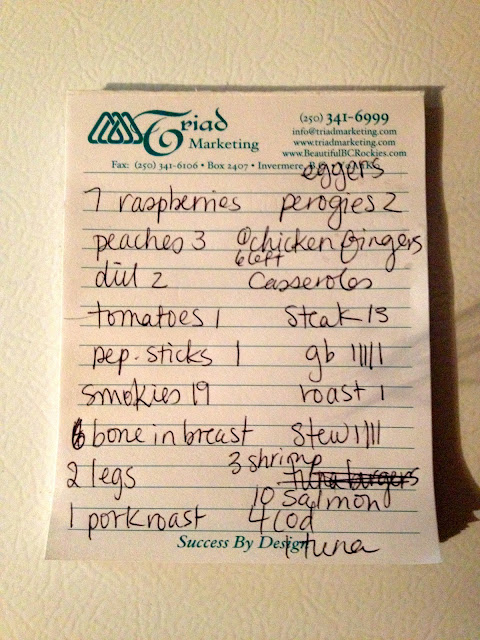 Triad
Marketing
(250) 341-6999
info@triadmarketing.com
www.triadmarketing.com
www.BeautifulBCRockies.com
Fax: (250) 341-6106 • Box 2407 • Invermere, B.C.
eggers
7 raspberries perogies 2
peaches 3 chicken fingers
6 left
dill 2 casseroles
tomatoes 1 steak 13
pep. sticks 1 gb 11111
smokies 19 roast 1
6 bone in breast stew 1111
3 shrimp
2 legs tuna burgers
10 salmon
1 pork roast 4 cod
Success By Design
1 tuna